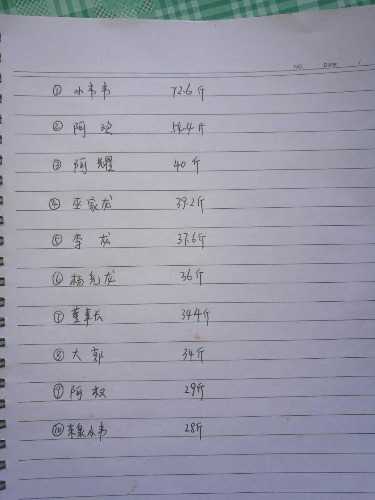 ① 小韦韦 72.6斤
② 阿 58.4斤
③ 阿耀 40斤
④ 巫家龙 39.2斤
⑤ 李龙 37.6斤
⑥ 杨龙 36斤
⑦ 董事长 34.4斤
⑧ 大郭 34斤
⑨ 阿权 29斤
⑩ 小韦 28斤